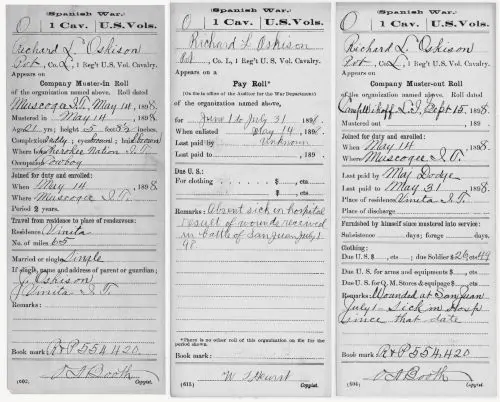 Spanish War.
O 1 Cav. U.S. Vols.
Richard L. Oskison
Pvt., Co. L, 1 Reg't U.S. Vol. Cavalry.
Appears on
Company Muster-in Roll
of the organization named above. Roll dated
Muscogee I.T., May 14, 1898.
Mustered in May 14, 1898.
Age 21 yrs; height 5 feet 8½ inches.
Complexion ; eyes brown; hair brown
Where born Cherokee Nation I.T.
Occupation Cowboy
Joined for duty and enrolled:
When May 14, 1898.
Where Muscogee I.T.
Period 2 years.
Travel from residence to place of rendezvous:
Residence Vinita
No. of miles 65
Married or single Single
If single, name and address of parent or guardian;
J. Oskison
Vinita I.T.
Remarks:
Book mark: R&P 554,420
O S Booth
Copyist.
Spanish War.
O 1 Cav. U.S. Vols.
Richard L Oskison
Pvt, Co. L, 1 Reg't U.S. Vol. Cavalry.
Appears on a
Pay Roll*
(On file in office of the Auditor for the War Department)
of the organization named above,
for June 1 to July 31, 1898
When enlisted May 14, 1898
Last paid by Unknown
Last paid to , 189 .
Due U.S.:
For clothing $ , cts
$ , cts
Remarks: Absent sick in hospital
result of wounds received
in battle of San Juan July 1
98
*There is no other roll of this organization on file for the
period shown.
Book mark:
(615)
Copyist.
Spanish War.
O 1 Cav. U.S. Vols.
Richard L. Oskison
Pvt, Co. L, 1 Reg't U.S. Vol. Cavalry.
Appears on
Company Muster-out Roll
of the organization named above. Roll dated
Camp Wikoff L.I., Sept 15, 1898.
Mustered out , 189 .
Joined for duty and enrolled:
When May 14, 1898.
Where Muscogee I.T.
Last paid by Maj Dodge
Last paid to May 31, 1898.
Place of residence Vinita I.T.
Place of discharge
Furnished by himself since mustered into service:
Subsistence days; forage days.
Clothing:
Due U.S. $ , cts; due Soldier $26, cts 49
Due U.S. for arms and equipments $ , cts
Due U.S. for Q.M. Stores & equipage $ , cts
Remarks: Wounded at San Juan
July 1 Sick in Hosp
since that date
Book mark: R&P 554,420
O S Booth
Copyist.